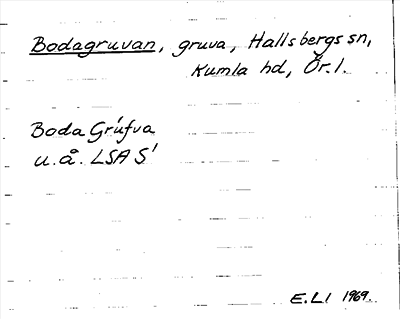 Bodagruvan, gruva, Hallsbergs sn,
Kumla hd, Ör. l.
Boda Grufva
u.å. LSA S1
E.LI 1969.